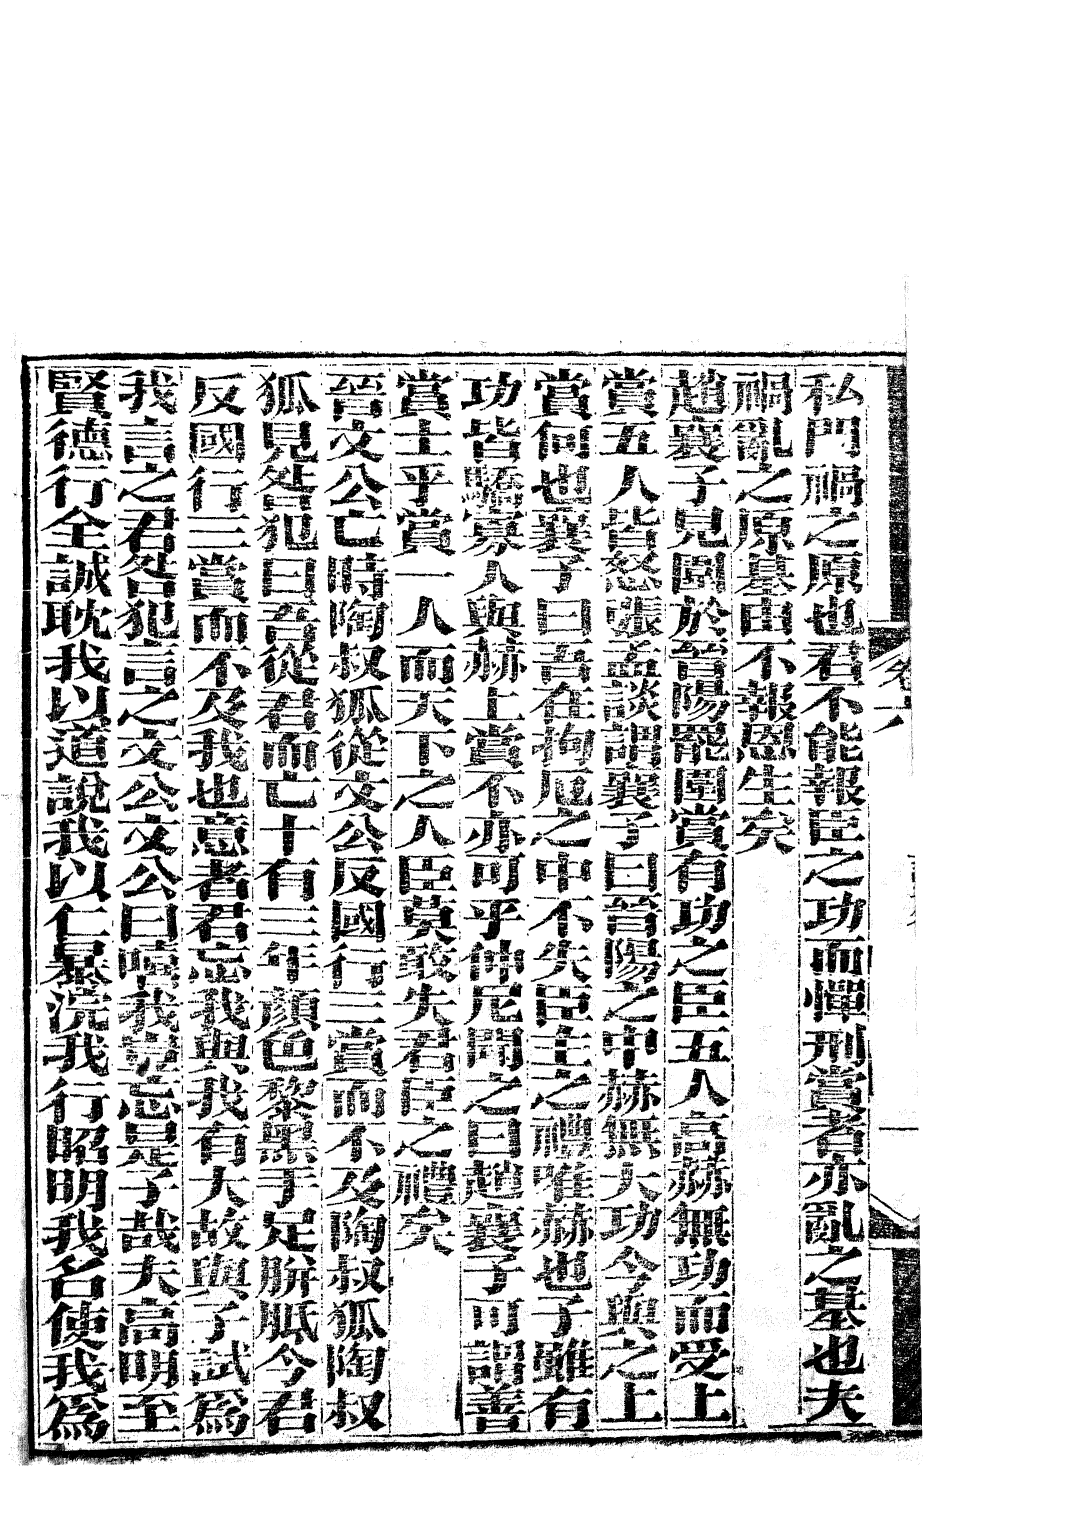 私門禍之原也君不能報臣之功而憚刑賞者亦亂之基也夫
禍亂之原基由不報恩生矣
趙襄子見圍於晉陽罷圍賞有功之臣五人高赫無功而受上
賞五人皆怒張孟談謂襄子曰晉陽之中赫無大功今與之上
賞何也襄子曰吾在拘厄之中不失臣主之禮唯赫也子雖有
功皆驕寡人與赫上賞不亦可乎仲尼聞之曰趙襄子可謂善
賞士乎賞一人而天下之人臣莫敢失君臣之禮矣
晉文公亡時陶叔狐從文公反國行三賞而不及陶叔狐陶叔
狐見咎犯曰吾從君而亡十有三年顏色黎黑手足胼胝今君
反國行三賞而不及我也意者君忘我與我有大故與子試為
我言之君咎犯言之文公文公曰嘻我豈忘是子哉夫高明至
賢德行全誠耽我以道說我以仁暴浣我行昭明我名使我為
卷六